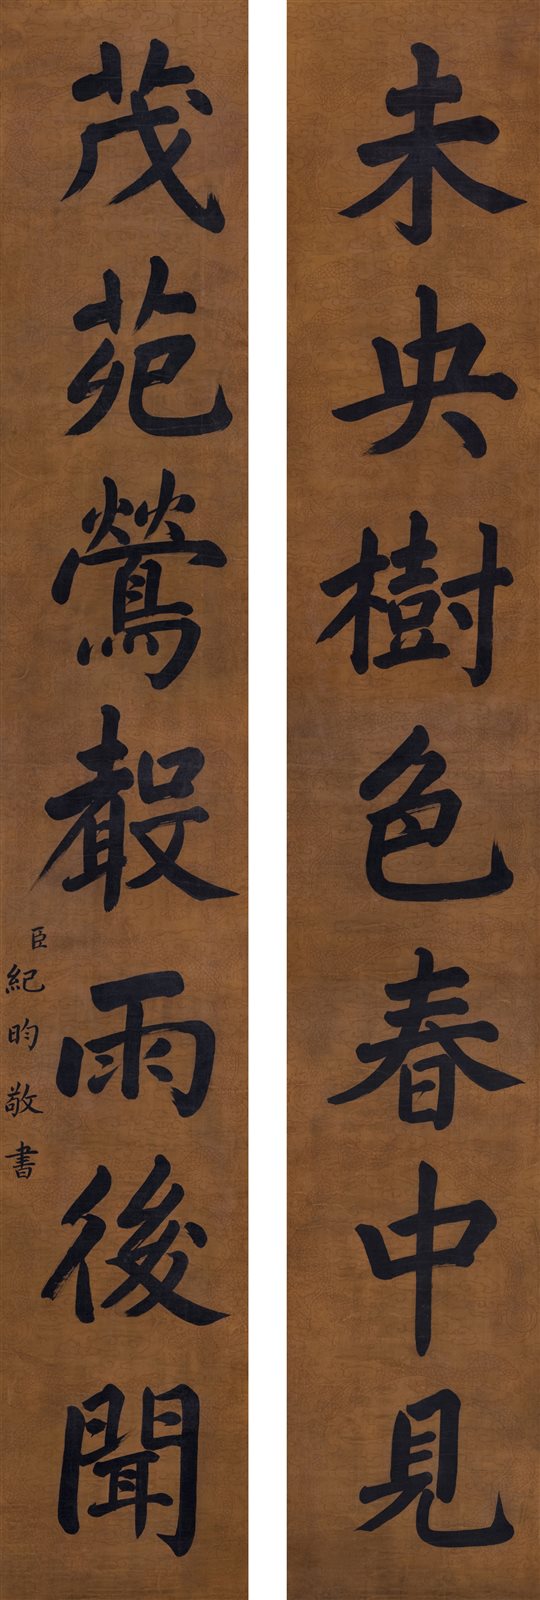 未央樹色春中見
茂苑鶯聲雨後聞
臣紀昀敬書